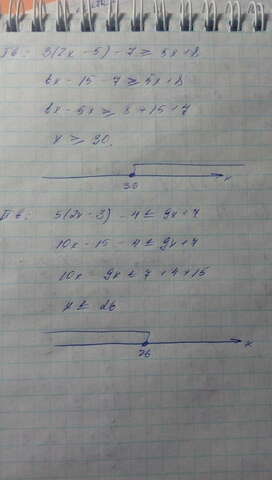 I в: 3(2x - 5) - 7 ≥ 5x + 8
6x - 15 - 7 ≥ 5x + 8
6x - 5x ≥ 8 + 15 + 7
x ≥ 30.
30 x
II в: 5(2x - 3) - 4 ≤ 9x + 7
10x - 15 - 4 ≤ 9x + 7
10x - 9x ≤ 7 + 4 + 15
x ≤ 26
26 x